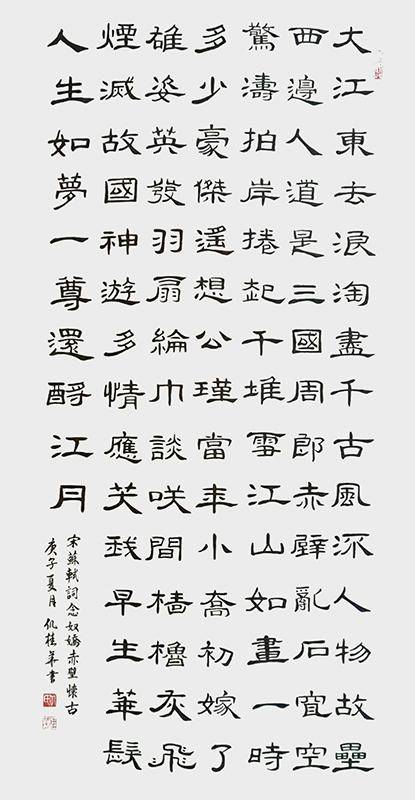 大江東去浪淘盡千古風流人物故壘
西邊人道是三國周郎赤壁亂石穿空
驚濤拍岸捲起千堆雪江山如畫一時
多少豪傑遙想公瑾當年小喬初嫁了
雄姿英發羽扇綸巾談咲間檣櫓灰飛
煙滅故國神遊多情應笑我早生華髮
人生如夢一尊還酹江月
宋蘇軾詞念奴嬌赤壁懷古
庚子夏月仇桂華書